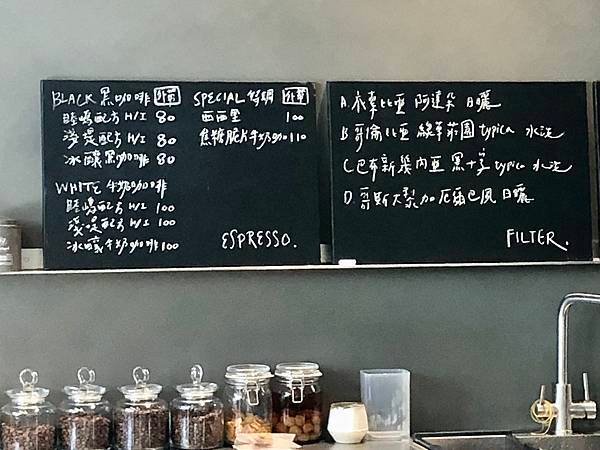 BLACK 黑咖啡 外帶
睦鳴配方 H/I 80
淺堤配方 H/I 80
冰釀黑咖啡 80
WHITE 牛奶咖啡
睦鳴配方 H/I 100
淺堤配方 H/I 100
冰釀牛奶咖啡 100
SPECIAL 特調
西西里 100
焦糖脆片牛奶咖 110
ESPRESSO.
A. 衣索比亞 阿達朵 日曬
B. 哥倫比亞 綠莊園 typica 水洗
C. 巴布新幾內亞 黑十字 typica 水洗
D. 哥斯大黎加 厄爾巴風 日曬
FILTER.